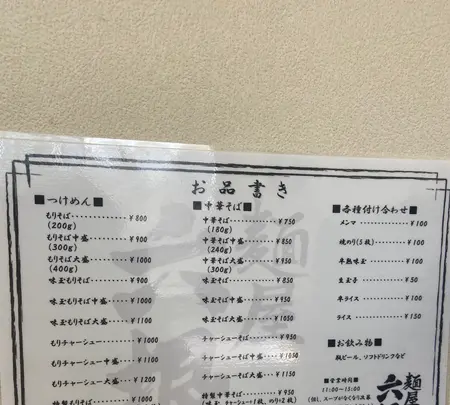 お品書き
■つけめん■
もりそば…………¥800
(200g)
もりそば中盛………¥900
(300g)
もりそば大盛………¥1000
(400g)
味玉もりそば………¥900
味玉もりそば中盛…¥1000
味玉もりそば大盛…¥1100
もりチャーシュー……¥1000
もりチャーシュー中盛…¥1100
もりチャーシュー大盛…¥1200
特製もりそば………¥1000
■中華そば■
中華そば…………¥750
(180g)
中華そば中盛………¥850
(240g)
中華そば大盛………¥950
(300g)
味玉そば…………¥850
味玉そば中盛………¥950
味玉そば大盛………¥1050
チャーシューそば……¥950
チャーシューそば中盛…¥1050
チャーシューそば大盛…¥1150
特製中華そば………¥950
(味玉1、チャーシュー1枚、のり2枚)
■各種付け合わせ■
メンマ…………¥100
焼のり(5枚)………¥100
半熟味玉…………¥100
生玉子…………¥50
半ライス…………¥100
ライス…………¥150
■お飲み物■
瓶ビール、ソフトドリンクなど
■営業時間■
11:00〜15:00
(但し、スープがなくなり次第
麺屋
六